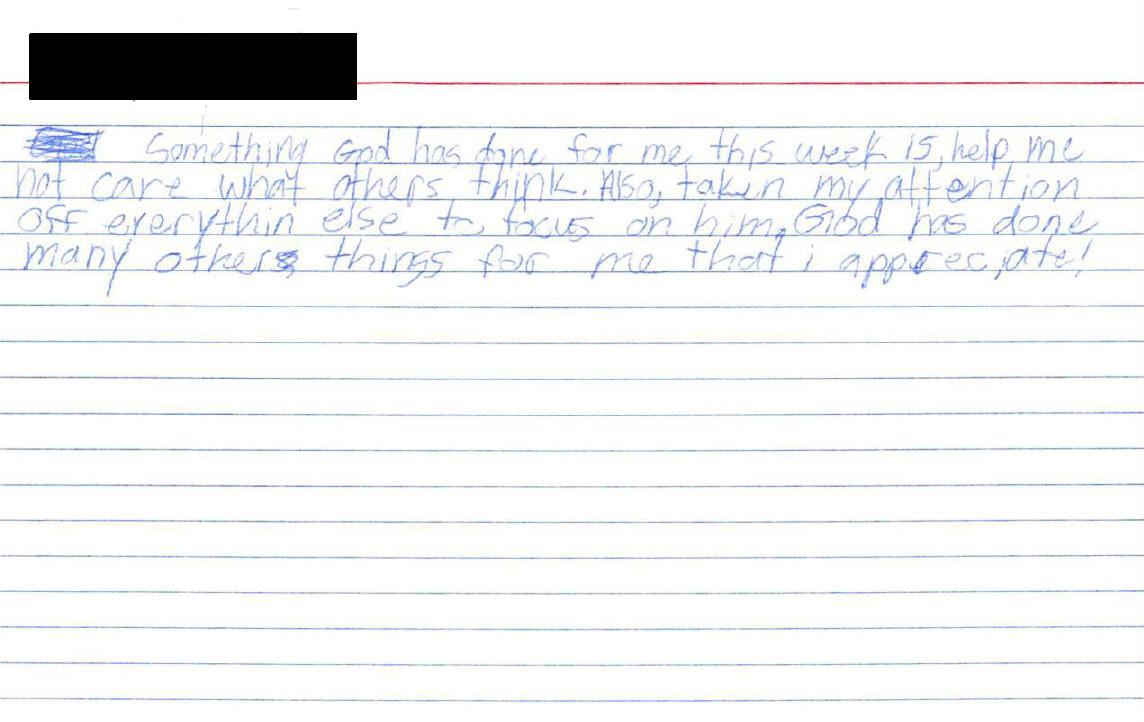 Something God has done for me this week is, help me
not care what others think. Also, taken my attention
off everythin else to focus on him. God has done
many others things for me that i appreciate!